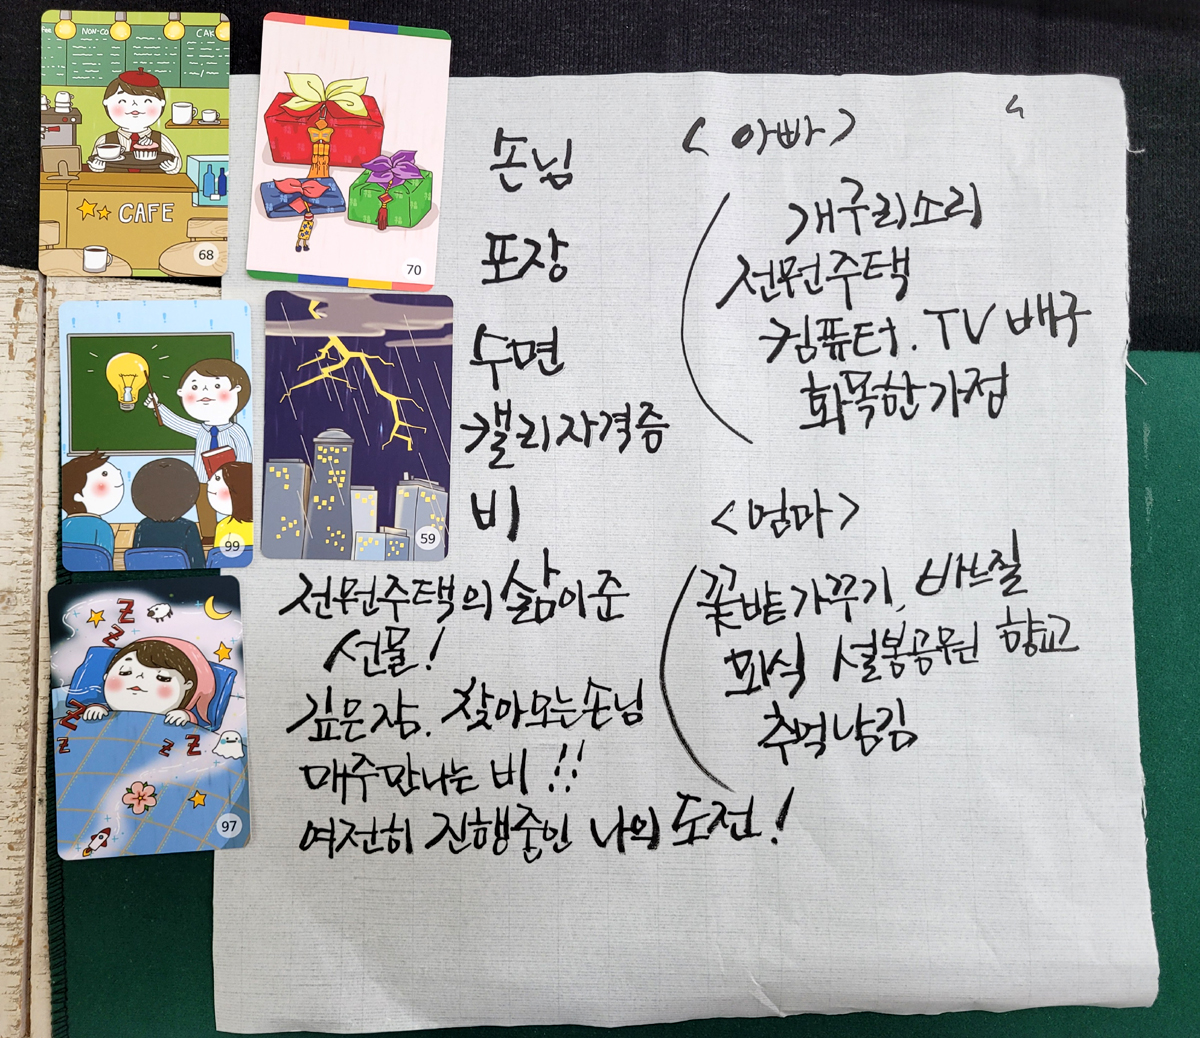 NON-CO
CAK
CAFE
68
70
99
59
Z
Z
Z
Z
Z
Z
Z
97
손님
포장
수면
캘리자격증
비
전원주택의 삶이 준
선물!
깊은잠. 찾아오는손님
매주만나는 비 !!
여전히 진행중인 나의 도전!
<아빠>
개구리소리
전원주택
컴퓨터. TV 배구
화목한가정
<엄마>
꽃밭가꾸기, 바느질
외식 설봉공원 향교
추억남김